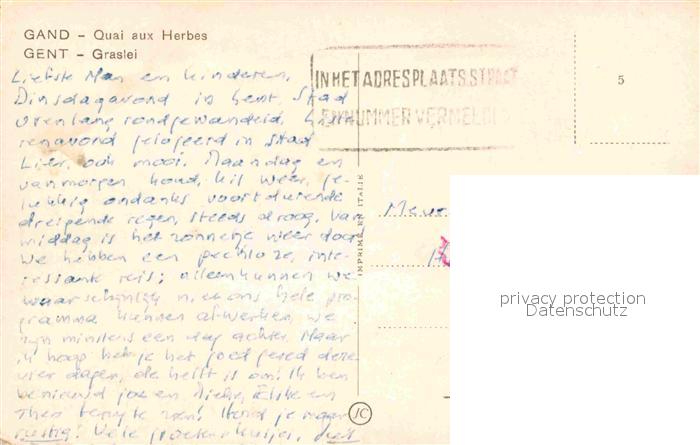 GAND - Quai aux Herbes
GENT - Graslei
Liefste Man en kinderen,
Dinsdagavond in Gent, Stad
urenlang rondgewandeld.
renavond gelogeerd in Stad
Lier, ook mooi. Maandag en
vanmorgen koud, kil weer, ge-
lukkig ondanks voortdurende
dreigende regen, steeds droog. Van
middag is het zonnetje weer door
We hebben een pechloze, inte-
ressante reis; alleen kunnen we
waarschijnlijk n. ons hele pro-
gramma kunnen afwerken, we
zijn minstens een dag achter. Maar
ik hoop heb je het goed gered deze
vier dagen, de helft is om! Ik ben
benieuwd jou en Elske en
Theo terug te zien! Houd je maar
rustig! Vele groeten kusjes,
IN HET ADRES PLAATS, STRAAT
EN NUMMER VERMELDEN
5
IMPRIMÉ EN ITALIE
JC
Mevr
privacy protection
Datenschutz